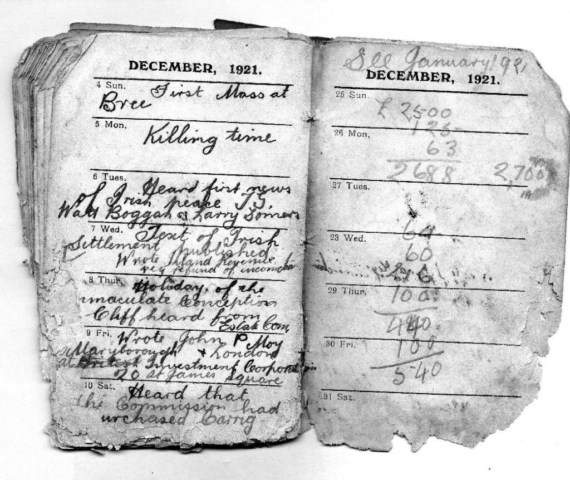 DECEMBER, 1921.
4 Sun. First Mass at
Bree
5 Mon.
Killing time
6 Tues. Heard first news
of Irish peace T.J.
Walt Boggan & Larry Somers
7 Wed. Text of Irish
Settlement published
Wrote Inland Revenue
re refund of income
8 Thur. Holiday of the
mmaculate Conception
Cliff heard from
Estate Com
9 Fri. Wrote John P Moy
Maryborough & London
at British Investment Corporat
20 St James Square
10 Sat. Heard that
the Commission had
urchased Carrig
See January 1921
DECEMBER, 1921.
25 Sun.
£ 2500
26 Mon.
63
2688 2,700
27 Tues.
64
28 Wed.
60
29 Thur.
100
440
30 Fri.
100
540
31 Sat.